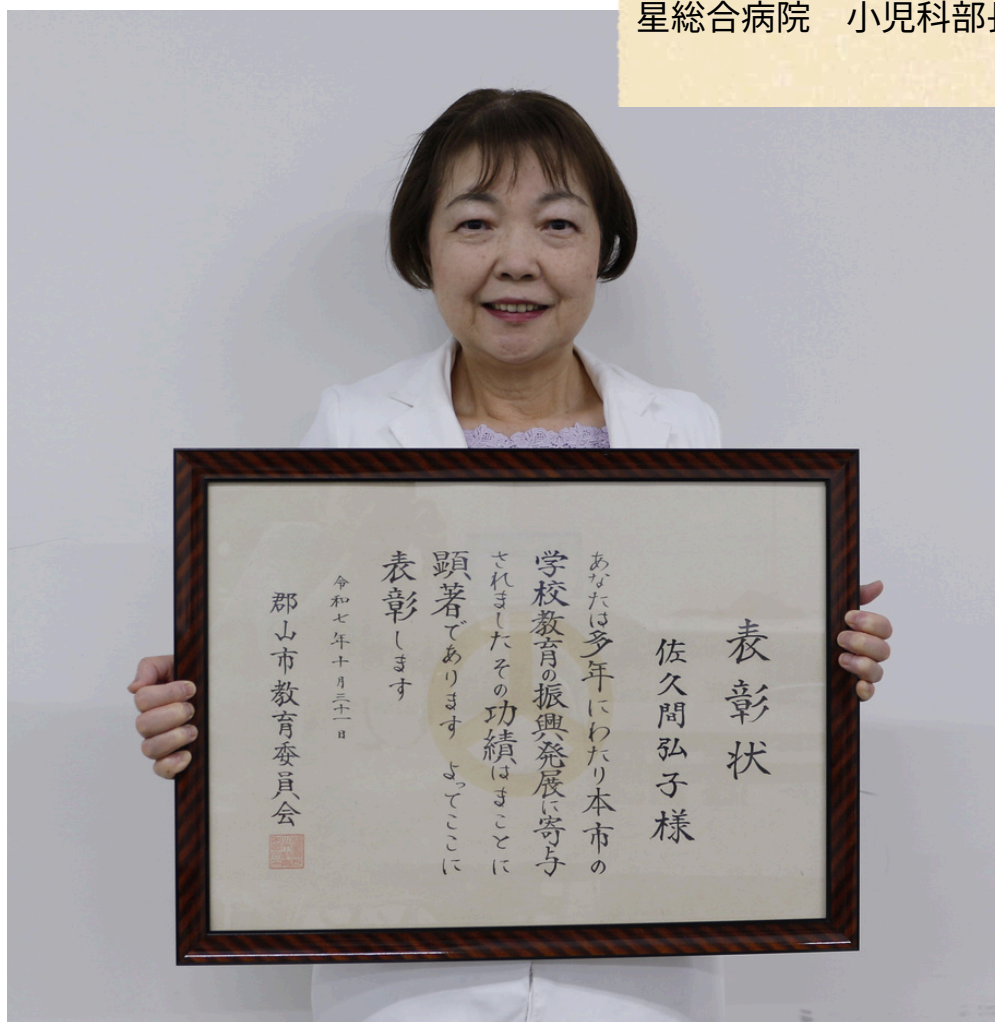 星総合病院 小児科部長
表彰状
佐久間弘子様
あなたは多年にわたり本市の
学校教育の振興発展に寄与
されましたその功績はまことに
顕著であります よってここに
表彰します
令和七年十月三十一日
郡山市教育委員会